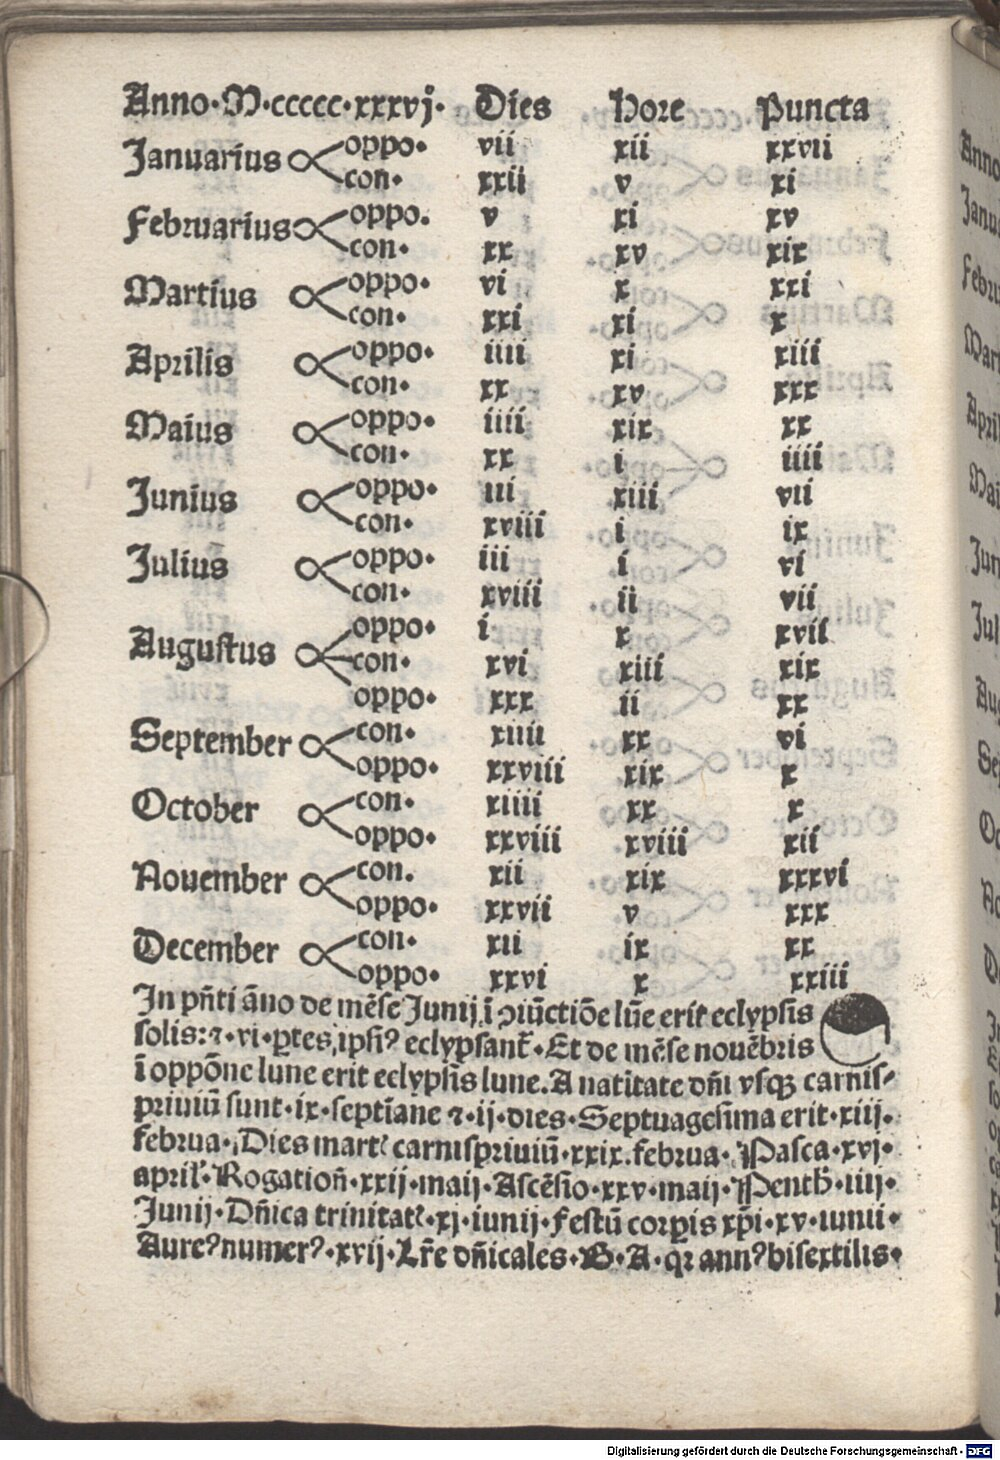 Anno·M·ccccc·xxxvj· Dies Hore Puncta
Januarius oppo· vii xii xxvii
con· xxii v xi
Februarius oppo. v xi xv
con· xx xv xix
Martius oppo· vi x xxi
con· xxi xi x
Aprilis oppo· iiii xi xiii
con· xx xv xxx
Maius oppo· iiii xix xx
con· xx i iiii
Junius oppo· iii xiii vii
con· xviii i ix
Julius oppo· iii i vi
con· xviii ii vii
Augustus oppo· i x xvii
con· xvi xiii xix
oppo· xxx ii xx
September con· xiiii xx vi
oppo· xxviii xix x
October con· xiiii xx x
oppo· xxviii xviii xii
Nouember con. xii xix xxxvi
oppo· xxvii v xxx
December con· xii ix xx
oppo· xxvi x xxiii
In pñti ãno de mẽse Junij ĩ ↄiũctiõe lũe erit eclypsis
solis: ⁊·vi·ꝑtes ipsiꝰ eclypsant̃·Et de mẽse nouẽbris
ĩ oppõne lune erit eclypsis lune. A natitate dñi vsqꝫ carnis⸗
priuiũ sunt·ix·septĩane ⁊·ij·dies·Septuagesima erit·xiij·
februa·Dies mart᷒ carnispriuiũ·xxix.februa·Pasca·xvj·
april᷒·Rogatioñ·xxij·maij·Ascẽsio·xxv·maij·Penth̃·iiij·
Junij·Dñica trinitat᷒·xj·iunij·Festũ corꝑis xp̃i·xv·iunii·
Aureꝰ numerꝰ·xvij·Lr̃e dñicales·B·A·qꝛ annꝰ bisextilis·
Digitalisierung gefördert durch die Deutsche Forschungsgemeinschaft - DFG